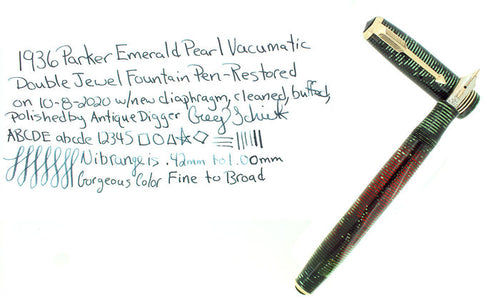 1936 Parker Emerald Pearl Vacumatic
Double Jewel Fountain Pen-Restored
on 10-8-2020 w/new diaphragm, cleaned, buffed,
polished by Antique Digger Greg
ABCDE abcde 12345
Nib range is .42mm to 1.00mm
Gorgeous Color Fine to Broad